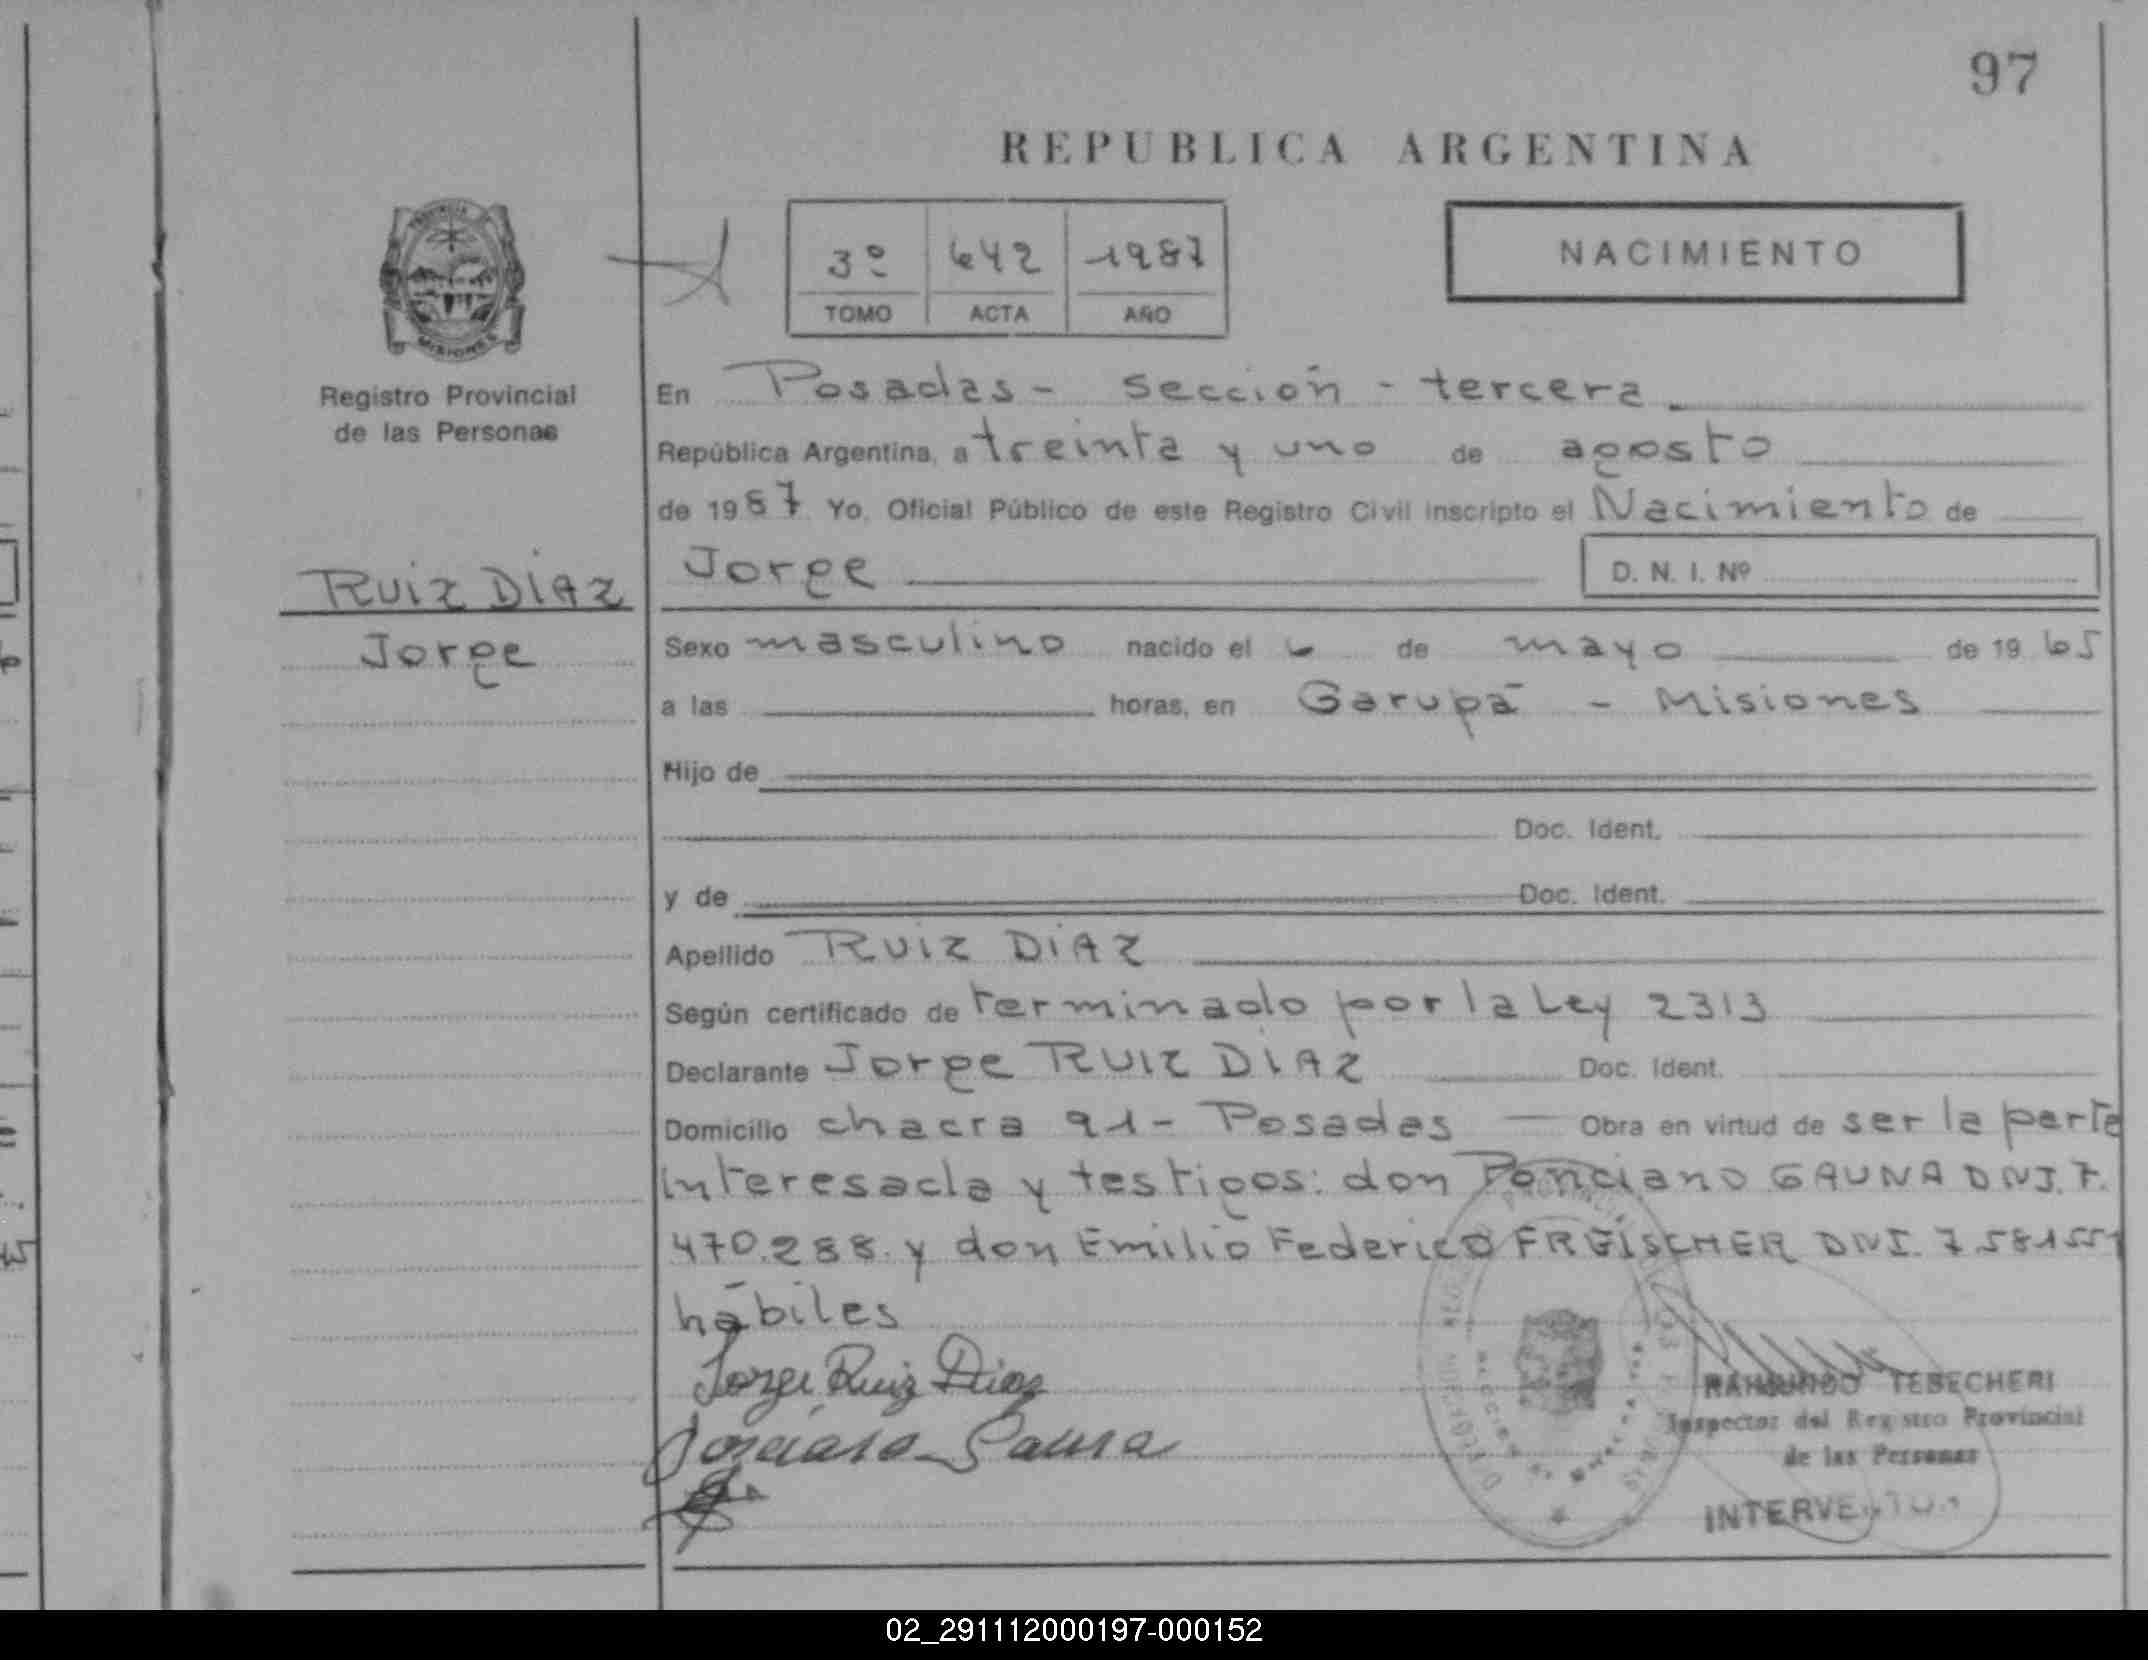 97
REPUBLICA ARGENTINA
3º 642 1987
TOMO ACTA AÑO
NACIMIENTO
MISIONES
Registro Provincial
de las Personas
En Posadas - sección - tercera
República Argentina, a treinta y uno de agosto
de 1987 Yo, Oficial Público de este Registro Civil inscripto el Nacimiento de
Jorge D. N. I. Nº
RUIZ DIAZ
Jorge
Sexo masculino nacido el 6 de mayo de 1965
a las horas, en Garupá - Misiones
Hijo de
Doc. Ident.
y de Doc. Ident.
Apellido RUIZ DIAZ
Según certificado de terminado por la Ley 2313
Declarante Jorge RUIZ DIAZ Doc. Ident.
Domicilio chacra 91 - Posadas Obra en virtud de ser la parte
interesada y testigos: don Ponciano GAUNA DNI. 7.
470.288. y don Emilio Federico FREISCHER DNI. 7.581551
hábiles
Jorge Ruiz Diaz
Ponciano Gauna
RAIMUNDO TEBECHERI
Inspector del Registro Provincial
de las Personas
INTERVENTOR
02_291112000197-000152